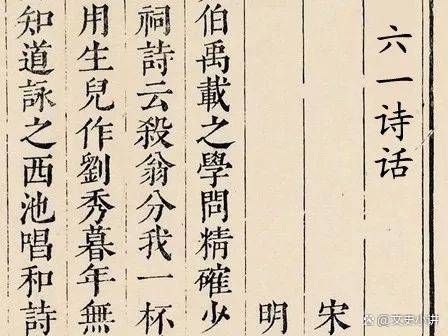 六一诗话
宋
明
伯禹載之學問精確少
祠詩云殺翁分我一杯
用生兒作劉秀暮年無
知道詠之西池唱和詩
@文史小讲